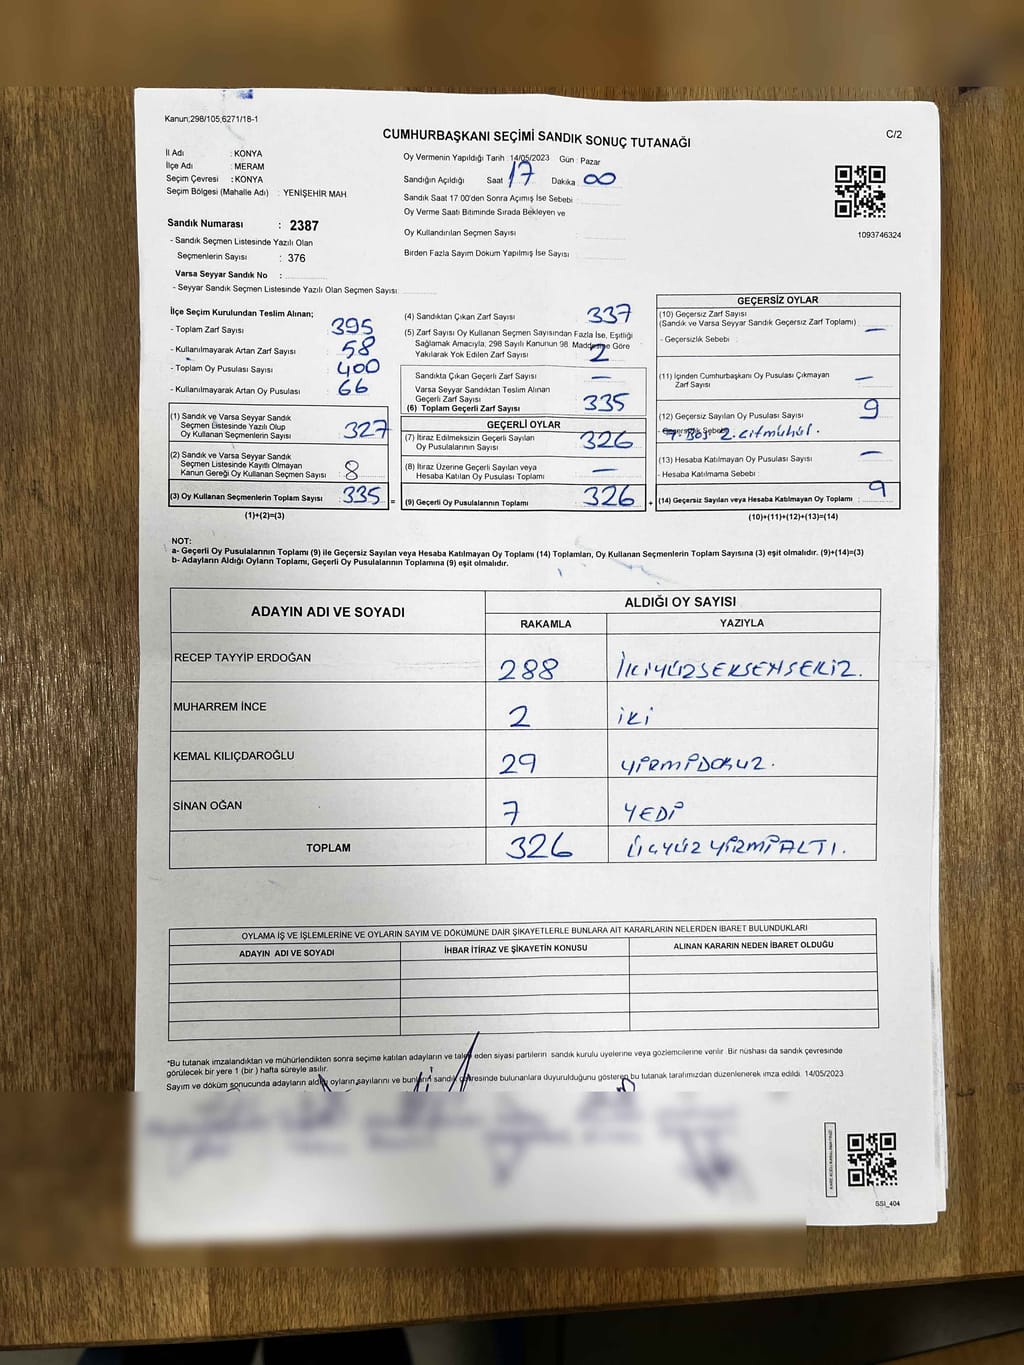 Kanun;298/105,6271/18-1
CUMHURBAŞKANI SEÇİMİ SANDIK SONUÇ TUTANAĞI
C/2
İl Adı : KONYA
İlçe Adı : MERAM
Seçim Çevresi : KONYA
Seçim Bölgesi (Mahalle Adı) : YENİŞEHİR MAH
Sandık Numarası : 2387
- Sandık Seçmen Listesinde Yazılı Olan
Seçmenlerin Sayısı : 376
Varsa Seyyar Sandık No :
- Seyyar Sandık Seçmen Listesinde Yazılı Olan Seçmen Sayısı
Oy Vermenin Yapıldığı Tarih : 14/05/2023 Gün : Pazar
Sandığın Açıldığı Saat 17 Dakika 00
Sandık Saat 17:00'den Sonra Açımış İse Sebebi
Oy Verme Saati Bitiminde Sırada Bekleyen ve
Oy Kullandırılan Seçmen Sayısı
Birden Fazla Sayım Döküm Yapılmış İse Sayısı
1093746324
İlçe Seçim Kurulundan Teslim Alınan;
- Toplam Zarf Sayısı 395
- Kullanılmayarak Artan Zarf Sayısı 58
- Toplam Oy Pusulası Sayısı 400
- Kullanılmayarak Artan Oy Pusulası 66
(1) Sandık ve Varsa Seyyar Sandık
Seçmen Listesinde Yazılı Olup
Oy Kullanan Seçmenlerin Sayısı 327
(2) Sandık ve Varsa Seyyar Sandık
Seçmen Listesinde Kayıtlı Olmayan
Kanun Gereği Oy Kullanan Seçmen Sayısı 8
(3) Oy Kullanan Seçmenlerin Toplam Sayısı 335 =
(1)+(2)=(3)
(4) Sandıktan Çıkan Zarf Sayısı 337
(5) Zarf Sayısı Oy Kullanan Seçmen Sayısından Fazla İse, Eşitliği
Sağlamak Amacıyla, 298 Sayılı Kanunun 98. Maddesine Göre
Yakılarak Yok Edilen Zarf Sayısı 2
Sandıkta Çıkan Geçerli Zarf Sayısı —
Varsa Seyyar Sandıktan Teslim Alınan
Geçerli Zarf Sayısı
(6) Toplam Geçerli Zarf Sayısı 335
GEÇERLİ OYLAR
(7) İtiraz Edilmeksizin Geçerli Sayılan
Oy Pusulasının Sayısı 326
(8) İtiraz Üzerine Geçerli Sayılan veya
Hesaba Katılan Oy Pusulası Toplamı —
(9) Geçerli Oy Pusulalarının Toplamı 326 +
GEÇERSİZ OYLAR
(10) Geçersiz Zarf Sayısı
(Sandık ve Varsa Seyyar Sandık Geçersiz Zarf Toplamı) —
- Geçersizlik Sebebi :
(11) İçinden Cumhurbaşkanı Oy Pusulası Çıkmayan
Zarf Sayısı —
(12) Geçersiz Sayılan Oy Pusulası Sayısı 9
- Geçersizlik Sebebi 7. Boş. 2. çift mühür.
(13) Hesaba Katılmayan Oy Pusulası Sayısı —
- Hesaba Katılmama Sebebi :
(14) Geçersiz Sayılan veya Hesaba Katılmayan Oy Toplamı 9
(10)+(11)+(12)+(13)=(14)
NOT:
a- Geçerli Oy Pusulalarının Toplamı (9) ile Geçersiz Sayılan veya Hesaba Katılmayan Oy Toplamı (14) Toplamları, Oy Kullanan Seçmenlerin Toplam Sayısına (3) eşit olmalıdır. (9)+(14)=(3)
b- Adayların Aldığı Oyların Toplamı, Geçerli Oy Pusulalarının Toplamına (9) eşit olmalıdır.
ADAYIN ADI VE SOYADI
ALDIĞI OY SAYISI
RAKAMLA YAZIYLA
RECEP TAYYİP ERDOĞAN 288 İKİYÜZSEKSENSEKİZ.
MUHARREM İNCE 2 İKİ
KEMAL KILIÇDAROĞLU 29 YİRMİDOKUZ.
SİNAN OĞAN 7 YEDİ
TOPLAM 326 ÜÇYÜZ YİRMİALTI.
OYLAMA İŞ VE İŞLEMLERİNE VE OYLARIN SAYIM VE DÖKÜMÜNE DAİR ŞİKAYETLERLE BUNLARA AİT KARARLARIN NELERDEN İBARET BULUNDUKLARI
ADAYIN ADI VE SOYADI İHBAR İTİRAZ VE ŞİKAYETİN KONUSU ALINAN KARARIN NEDEN İBARET OLDUĞU
*Bu tutanak imzalandıktan ve mühürlendikten sonra seçime katılan adayların ve talep eden siyasi partilerin sandık kurulu üyelerine veya gözlemcilerine verilir. Bir nüshası da sandık çevresinde
görülecek bir yere 1 (bir ) hafta süreyle asılır.
Sayım ve döküm sonucunda adayların aldığı oyların sayılarını ve bunların sandık çevresinde bulunanlara duyurulduğunu gösteren bu tutanak tarafımızdan düzenlenerek imza edildi. 14/05/2023
SSİ_404